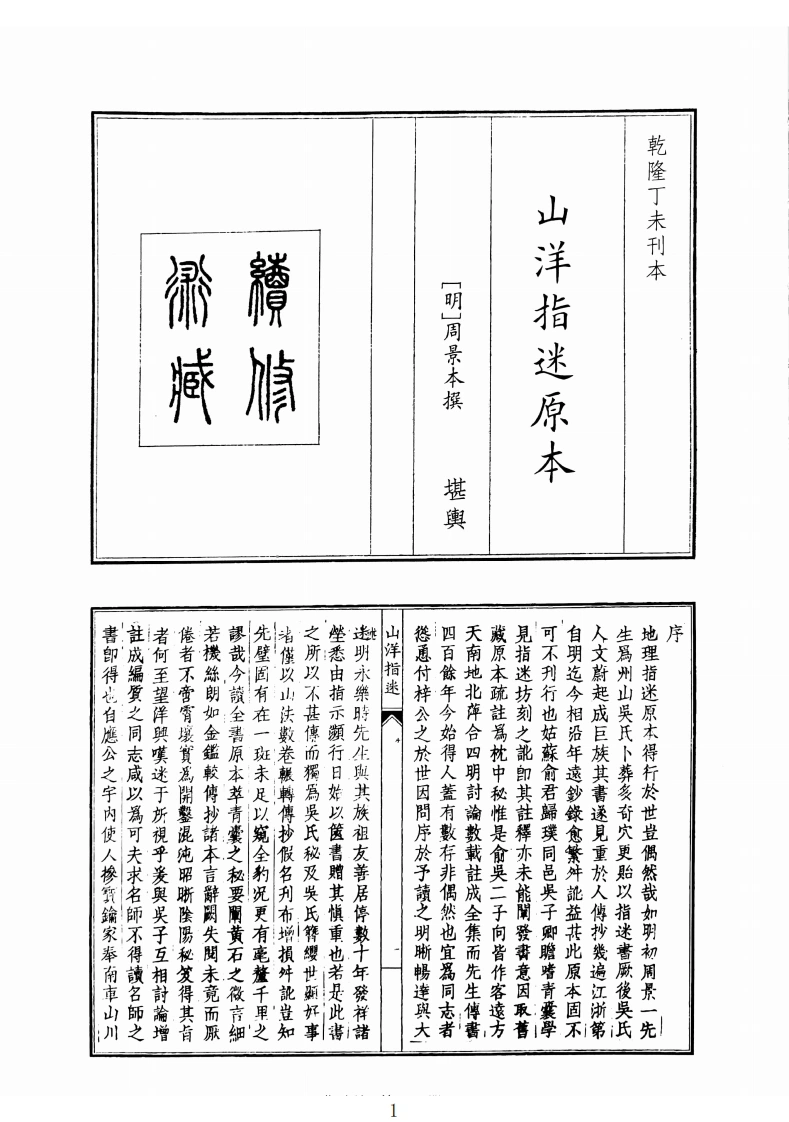 乾隆丁未刊本
山洋指迷原本
［明］周景本撰　堪輿
續修
術藏
序
地理指迷原本得行於世豈偶然哉如明初周景一先
生爲州山吳氏卜葬多奇穴更貽以指迷書厥後吳氏
人文蔚起成巨族其書遂見重於人傳抄幾遍江浙第
自明迄今相沿年遠鈔錄愈繁舛訛益甚此原本固不
可不刊行也姑蘇俞君歸璞同邑吳子卿瞻嗜青囊學
見指迷坊刻之訛卽其註釋亦未能闡發書意因取舊
藏原本疏註爲枕中秘惟是俞吳二子向皆作客遠方
天南地北萍合四明討論數載註成全集而先生傳書
四百餘年今始得人蓋有數存非偶然也宜爲同志者
慫恿付梓公之於世因問序於予讀之明晰暢達與大
山洋指迷
序
一
述明永樂時先生與其族祖友善居停數十年發祥諸
塋悉由指示瀕行日始以箧書贈其愼重也若是此書
之所以不甚傳而獨爲吳氏秘及吳氏簪纓世顯好事
者僅以山法數卷輾轉傳抄假名刊布增損舛訛豈知
先璧固有在一斑未足以窺全豹況更有毫釐千里之
謬哉今讀全書原本萃青囊之秘要闡黃石之微言細
若機絲朗如金鑑較傳抄諸本言辭闕失閱未竟而厭
倦者不啻霄壤實爲開鑿混沌昭晰陰陽秘笈得其旨
者何至望洋興嘆迷于所視乎爰與吳子互相討論增
註成編質之同志咸以爲可夫求名師不得讀名師之
書卽得也自應公之宇内使人摻寶鑰家奉南車山川
1